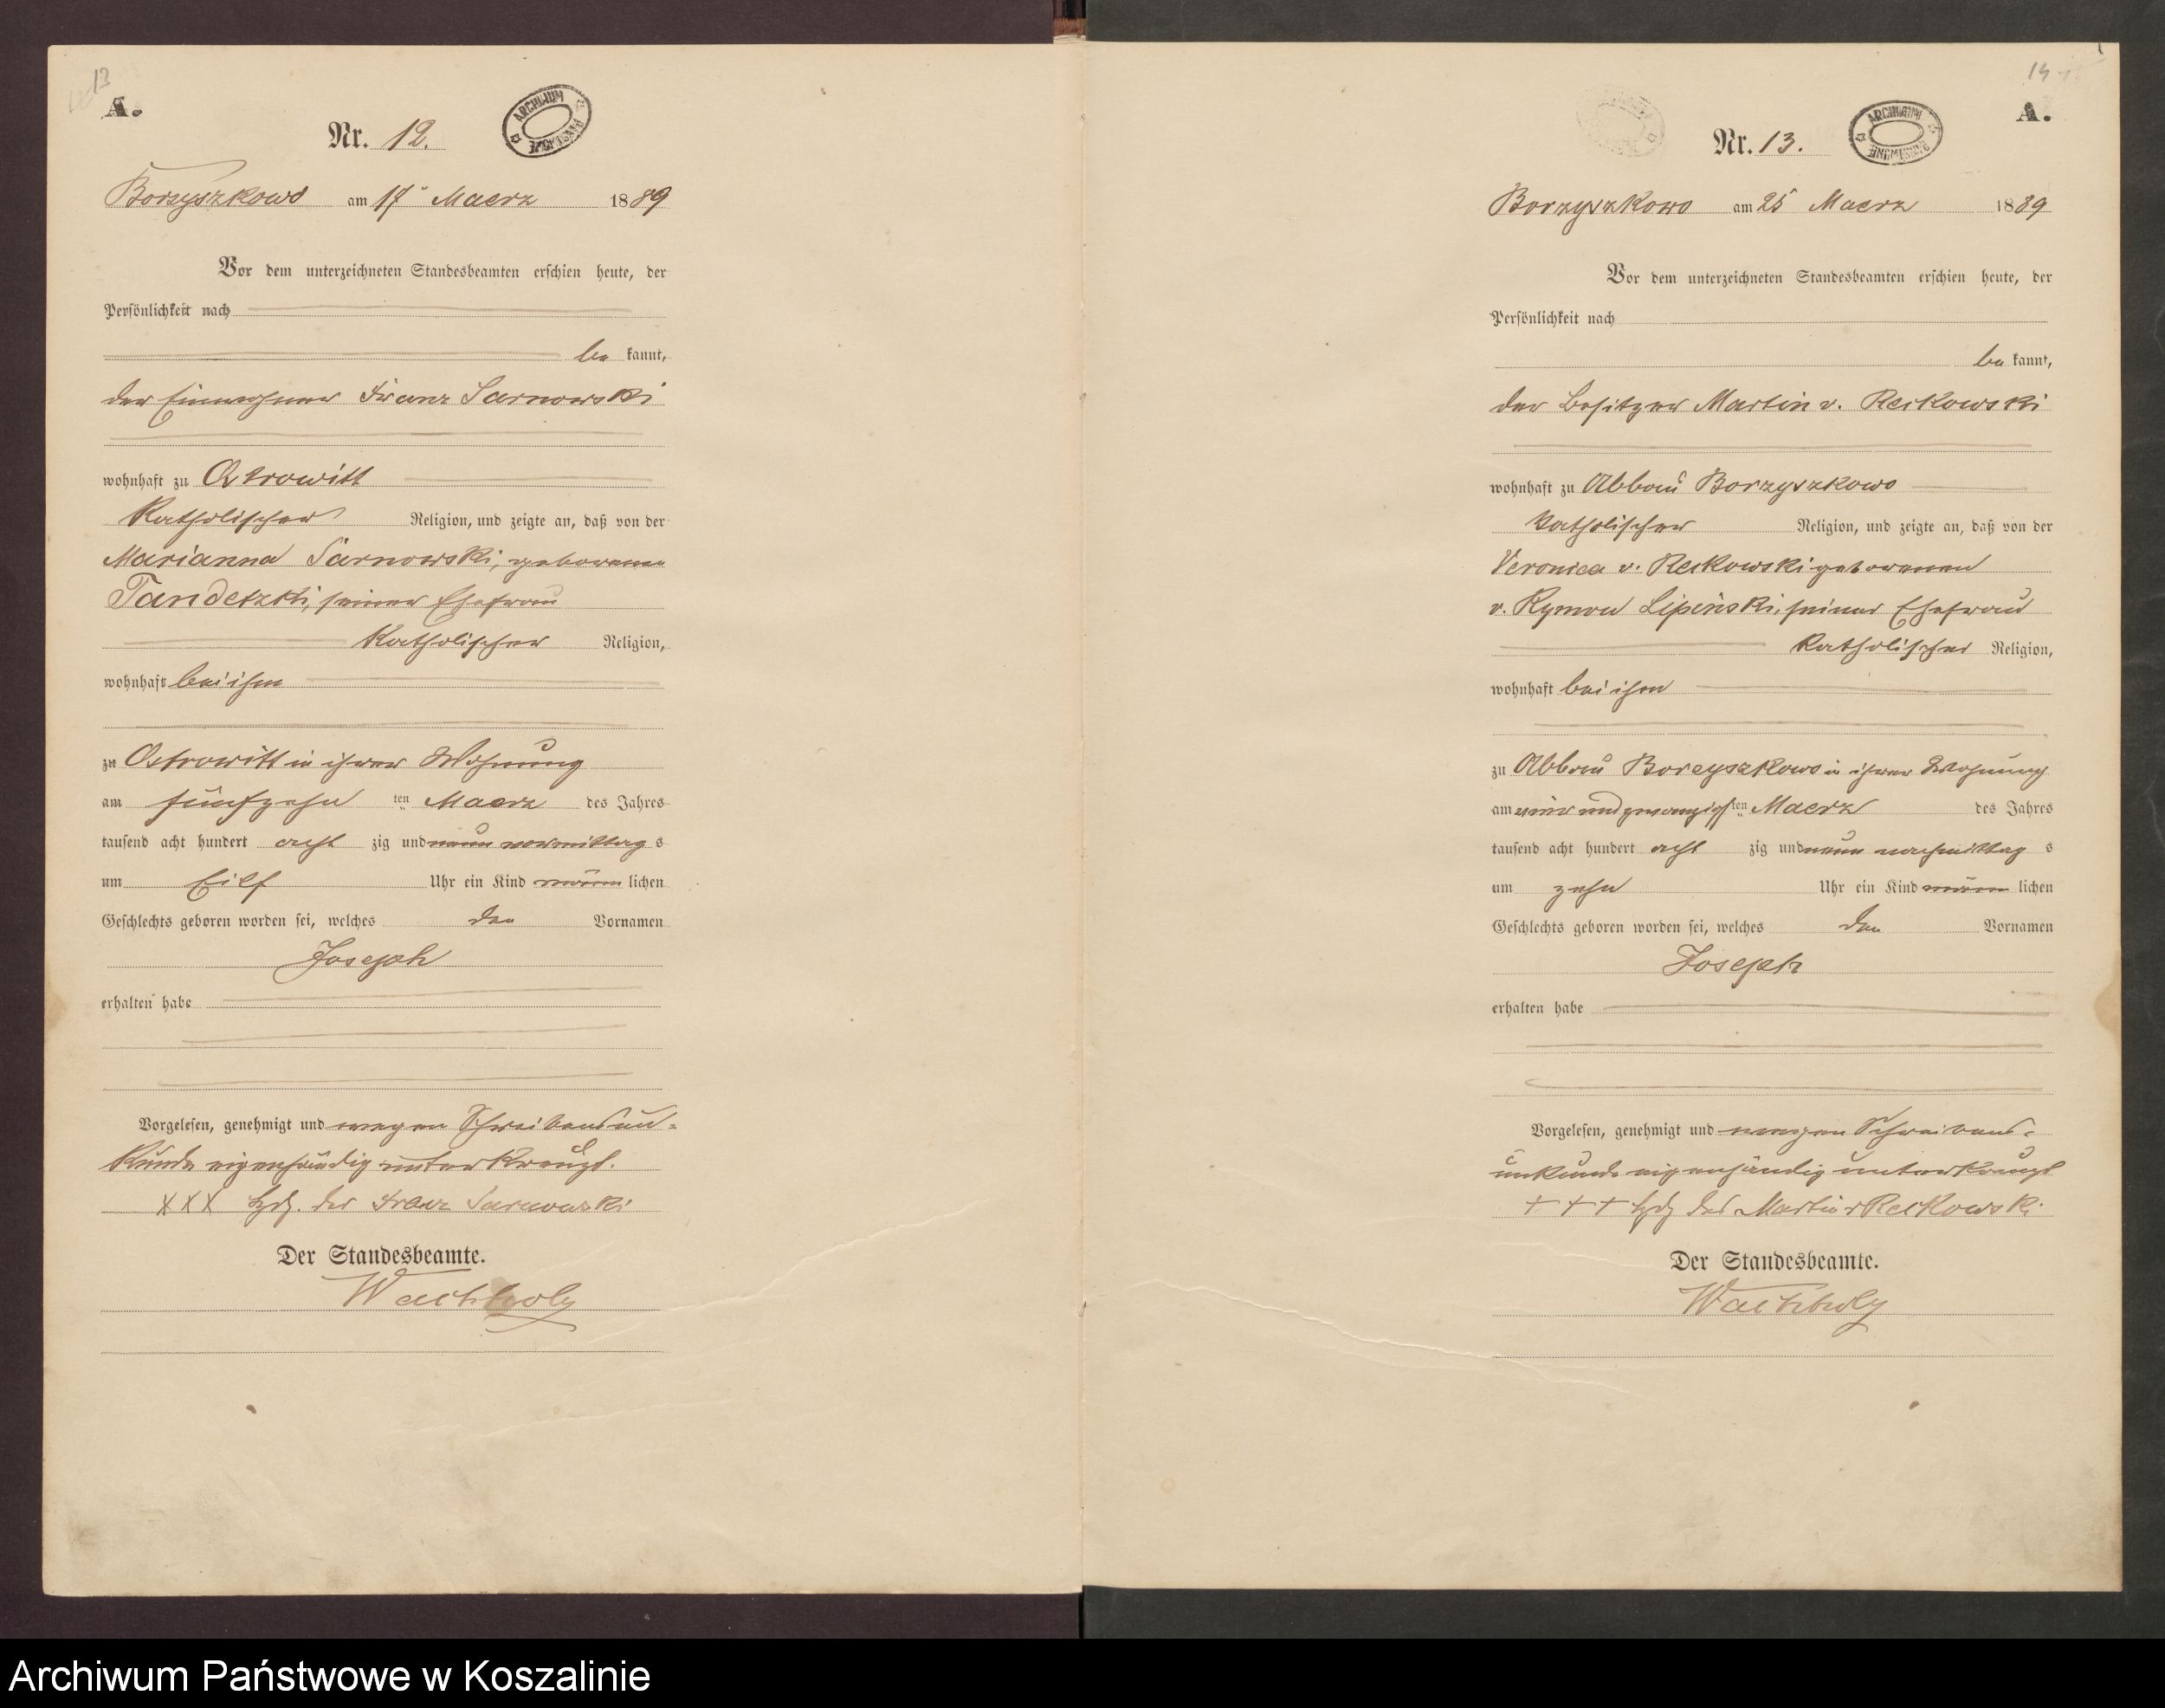 13
A.
Nr. 12.
ARCHIWUM PAŃSTWOWE
Borzyszkowo am 17 Maerz 1889
Vor dem unterzeichneten Standesbeamten erschien heute, der
Persönlichkeit nach
be kannt,
der Einwohner Franz Sarnowski
wohnhaft zu Ostrowitt
Katholischer Religion, und zeigte an, daß von der
Marianna Sarnowski, geborene
Tandetzki, seiner Ehefrau
Katholischer Religion,
wohnhaft bei ihm
zu Ostrowitt in ihrer Wohnung
am fünfzehn ten Maerz des Jahres
tausend acht hundert acht zig und neun vormittag s
um Eilf Uhr ein Kind männ lichen
Geschlechts geboren worden sei, welches den Vornamen
Joseph
erhalten habe
Vorgelesen, genehmigt und wegen Schreibensun=
kunde eigenhändig unterkreuzt.
XXX Hdz. des Franz Sarnowski
Der Standesbeamte.
Wachholz
14
A.
Nr. 13.
ARCHIWUM PAŃSTWOWE
Borzyszkowo am 25 Maerz 1889
Vor dem unterzeichneten Standesbeamten erschien heute, der
Persönlichkeit nach
be kannt,
der Besitzer Martin v. Reckowski
wohnhaft zu Abbau Borzyszkowo
katholischer Religion, und zeigte an, daß von der
Veronica v. Reckowski geborenen
v. Rymon Lipinski, seiner Ehefrau
katholischer Religion,
wohnhaft bei ihm
zu Abbau Borzyszkowo in ihrer Wohnung
am ein und zwanzigsten Maerz des Jahres
tausend acht hundert acht zig und neun nachmittag s
um zehn Uhr ein Kind männ lichen
Geschlechts geboren worden sei, welches den Vornamen
Joseph
erhalten habe
Vorgelesen, genehmigt und wegen Schreibens=
unkunde eigenhändig unterkreuzt
+ + + Hdz des Martin v Reckowski
Der Standesbeamte.
Wachholz
Archiwum Państwowe w Koszalinie